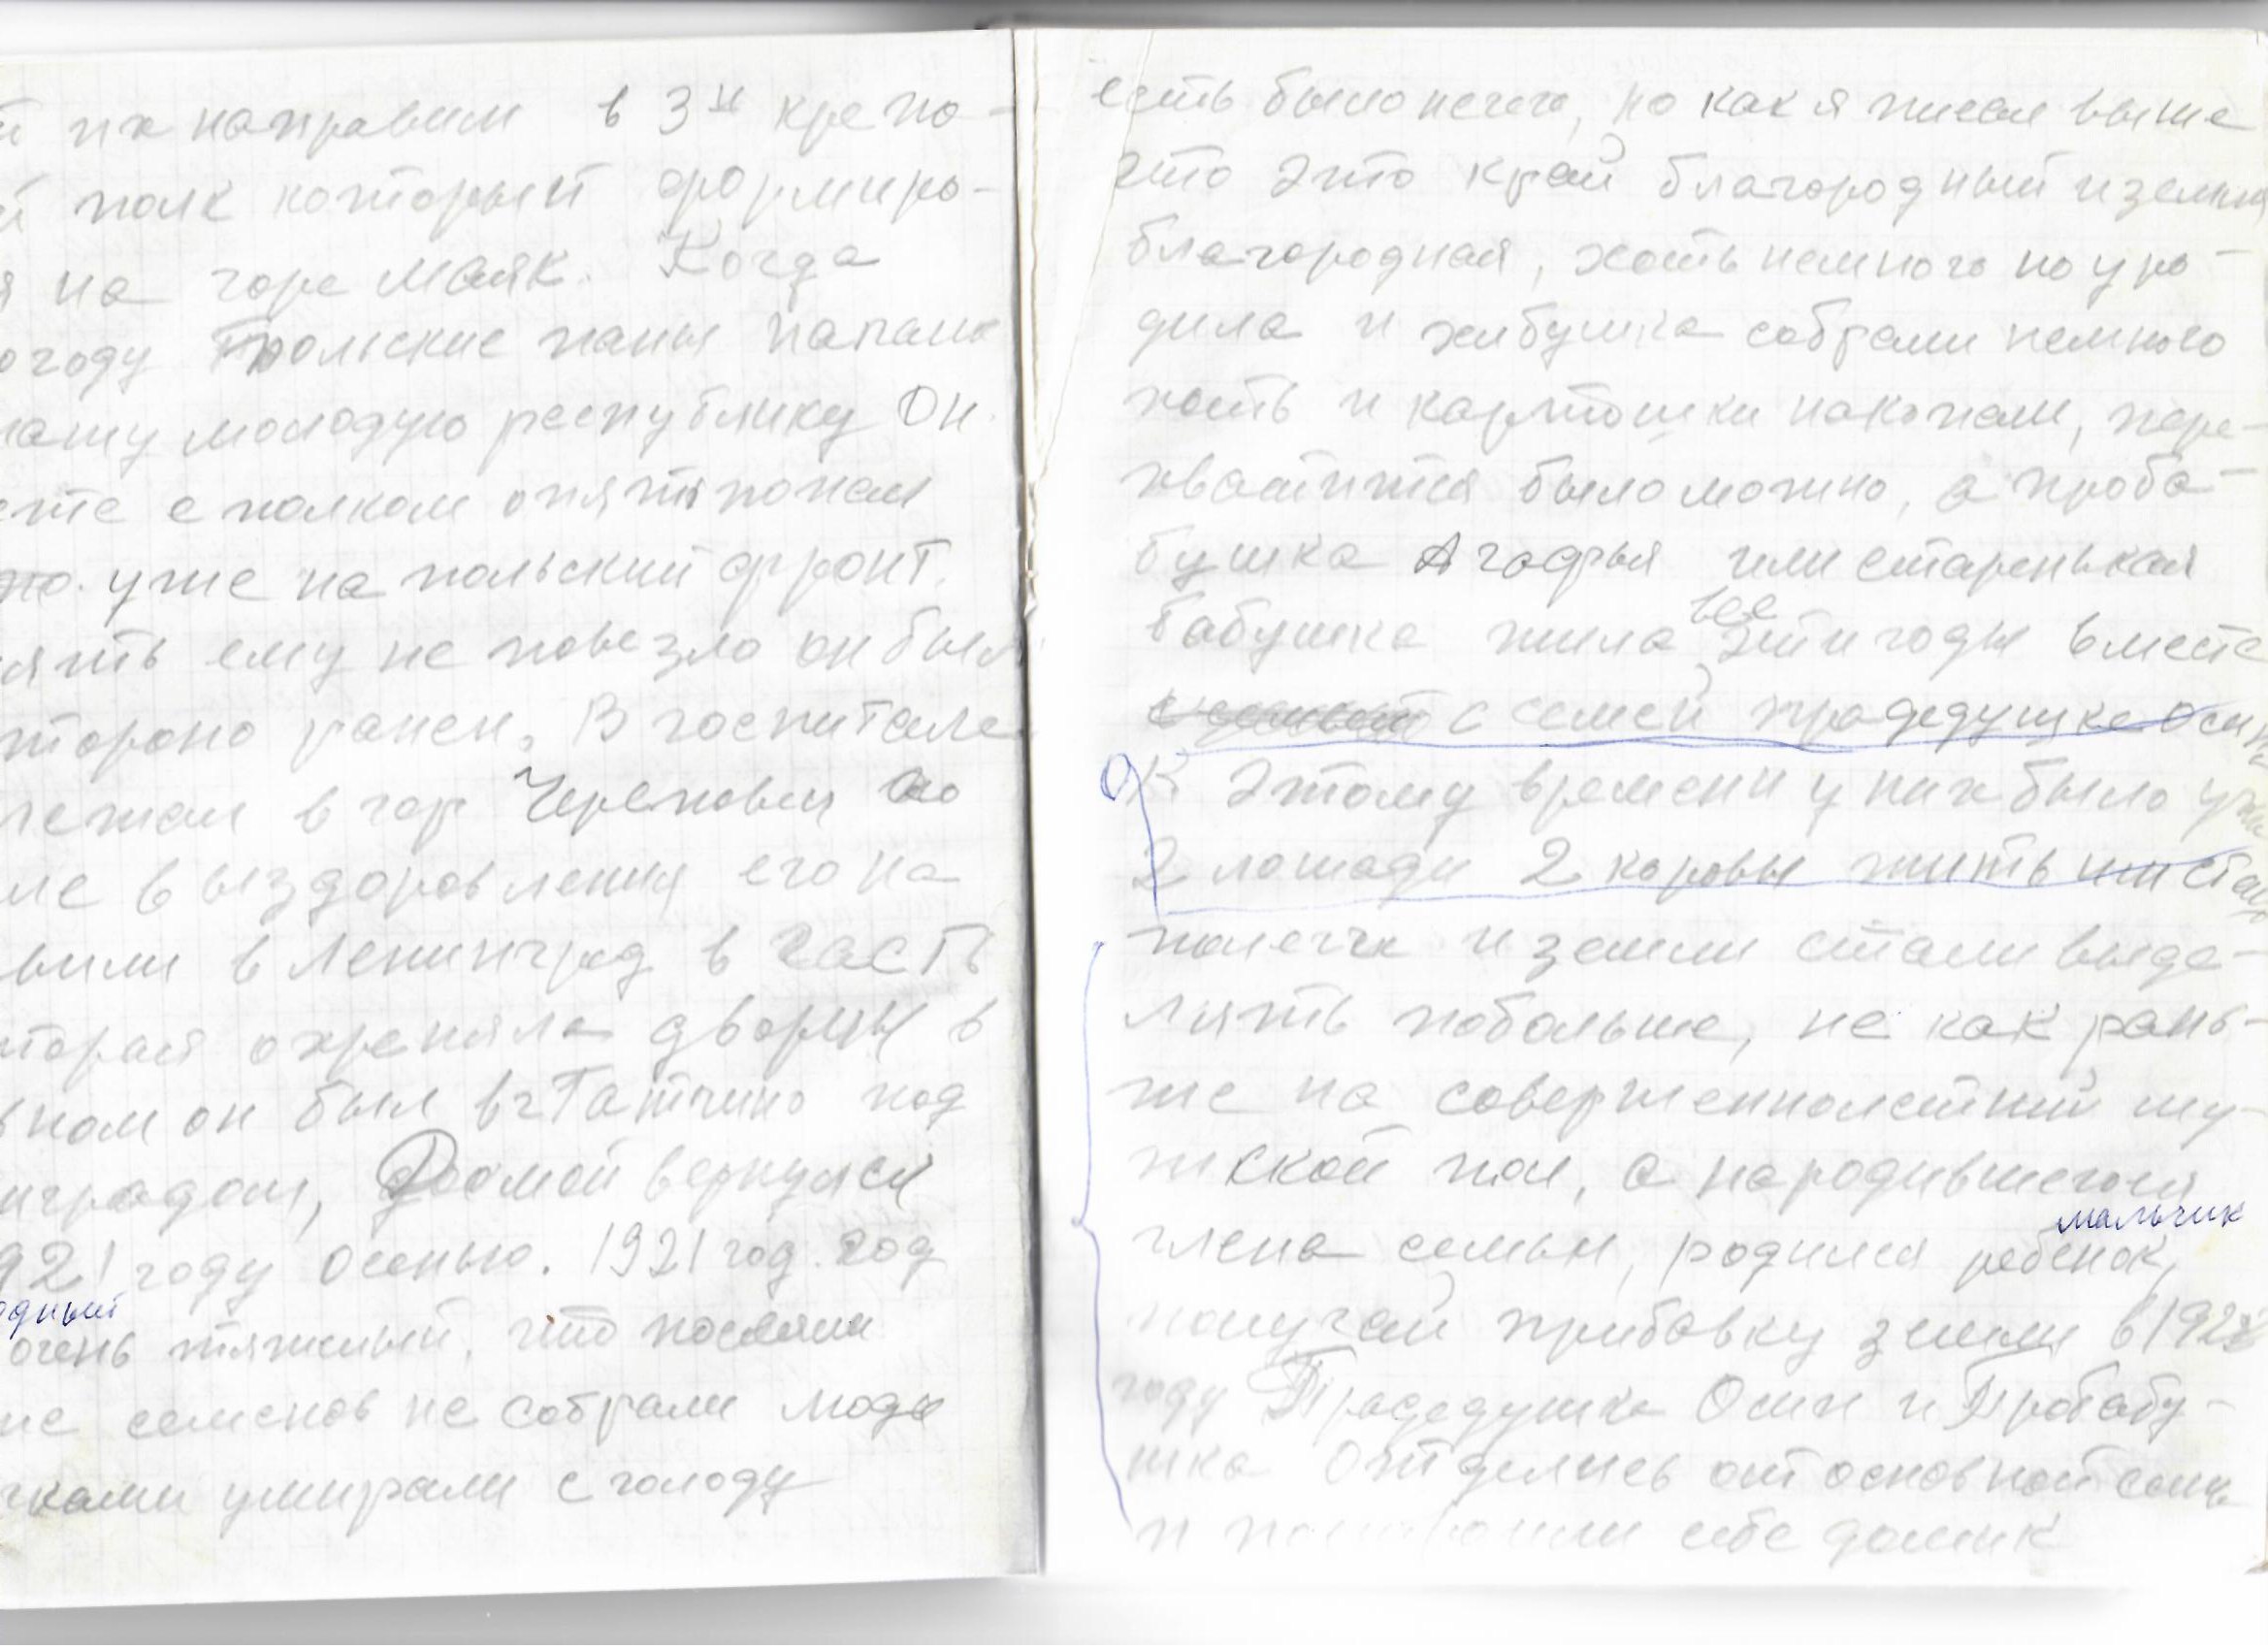 й их направили в 3й крепо-
й полк который формиро-
я на горе Маяк. Когда
огоду Польские паны напали
нашу молодую республику Он
сте с полком опять попал
это. уже на польский фронт.
ять ему не повезло он был
торано ранен. В госпитале
лежал в гор Череповец по
ле выздоровления его на
вили в Ленинград в часть
торая охраняла дворцы в
вном он был в г Гатчино под
нградом, Домой вернулся
921 году осенью. 1921 год. год
одный
очень тяжелый, что посеяли
же семенов не собрали люди
чками умирали с голоду
есть было нечего, но как я писал выше
что это край благородный и земля
благородная, хоть немного но уро-
дила и хлебушка собрали немного
хоть и картошки накопали, пере-
хватится было можно, а праба-
бушка Агафья или старенькая
все
бабушка жила эти годы вместе
с семей прадедушке Осип
К этому времени у них было уже
2 лошади 2 коровы жить им стал
полегче и земли стали выде-
лять побольше, не как рань-
ше на совершеннолетний му-
жской пол, а народившегося
мальчик
члена семьи, родился ребенок,
получай прибавку земли в 1922
году Прадедушка Осип и Прабабу-
шка Отделись от основной семьи
и построили себе домик